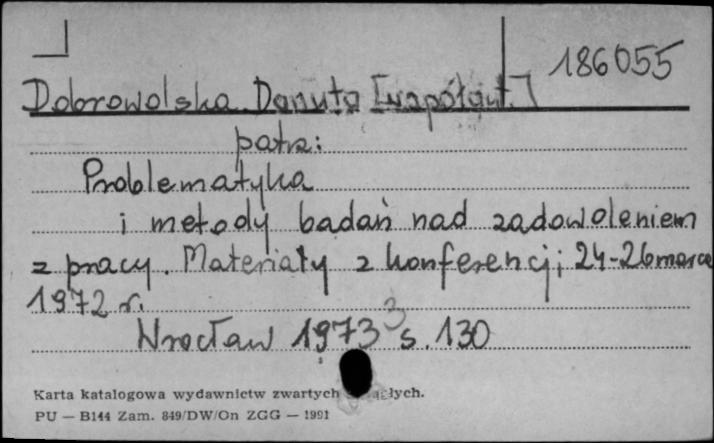 186055
Dobrowolska Danuta [współaut.]
patrz:
Problematyka
i metody badań nad zadowoleniem
z pracy. Materiały z konferencji 24-26 marca
1972 r.
Wrocław 1973 s. 130
3
Karta katalogowa wydawnictw zwartych
PU — B144 Zam. 849/DW/On ZGG — 1991